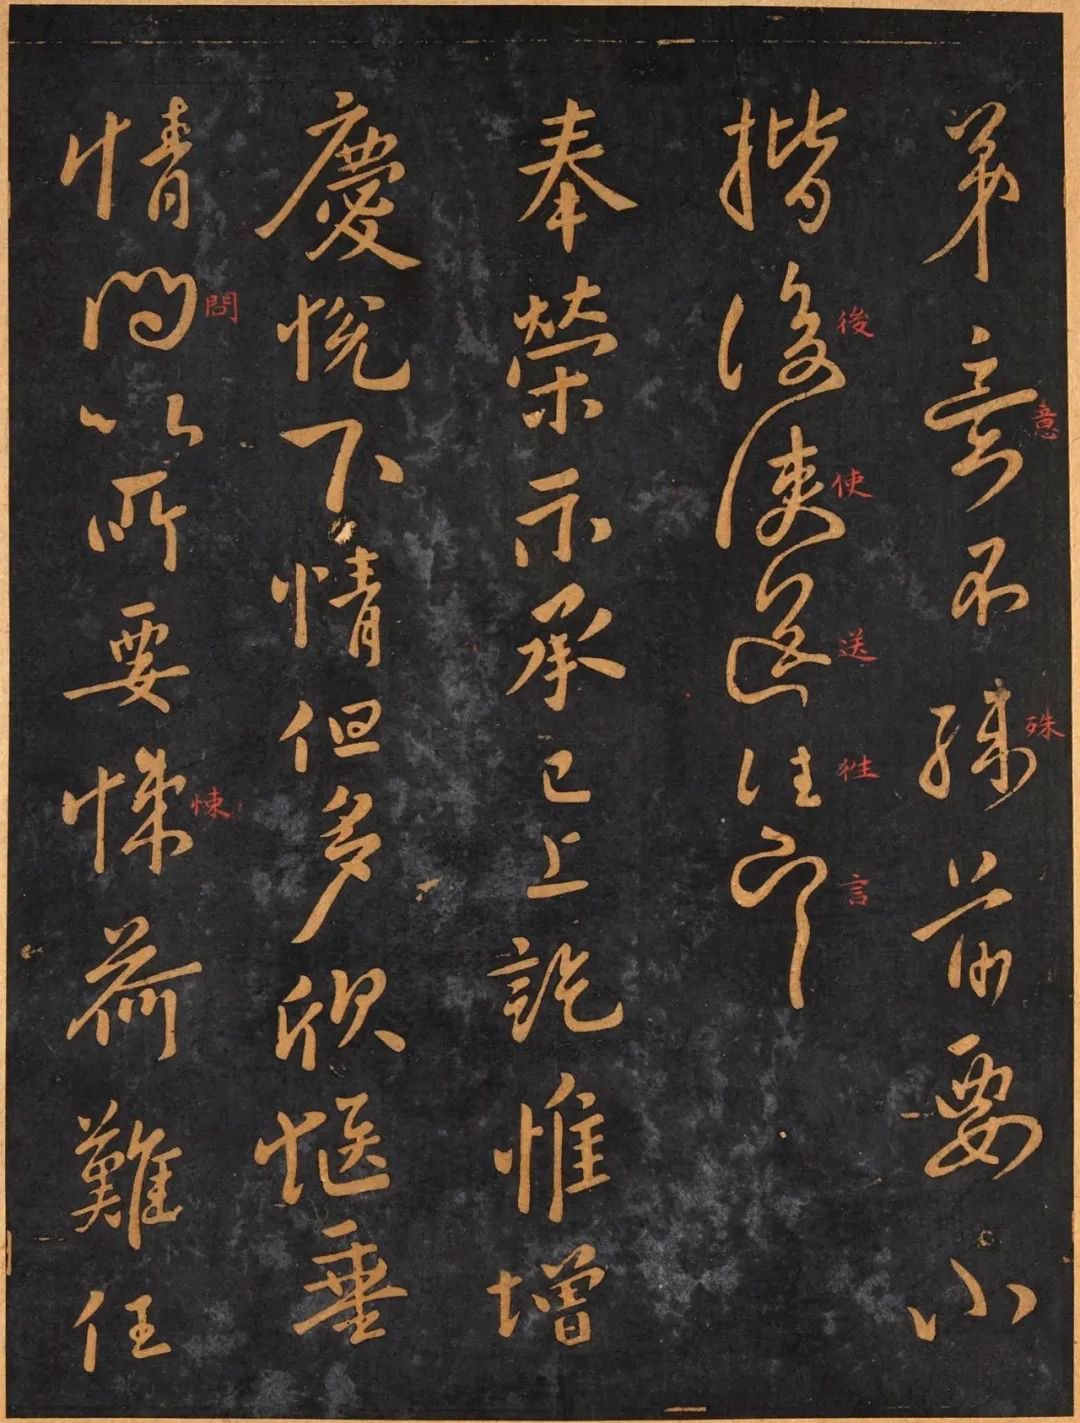 弟意不殊前要小
楷後使送往
奉榮示承已上訖惟增
慶悅下情但多欣愜垂
情問以所要悚荷難任
意
殊
後
使
送
狌
言
問
悚